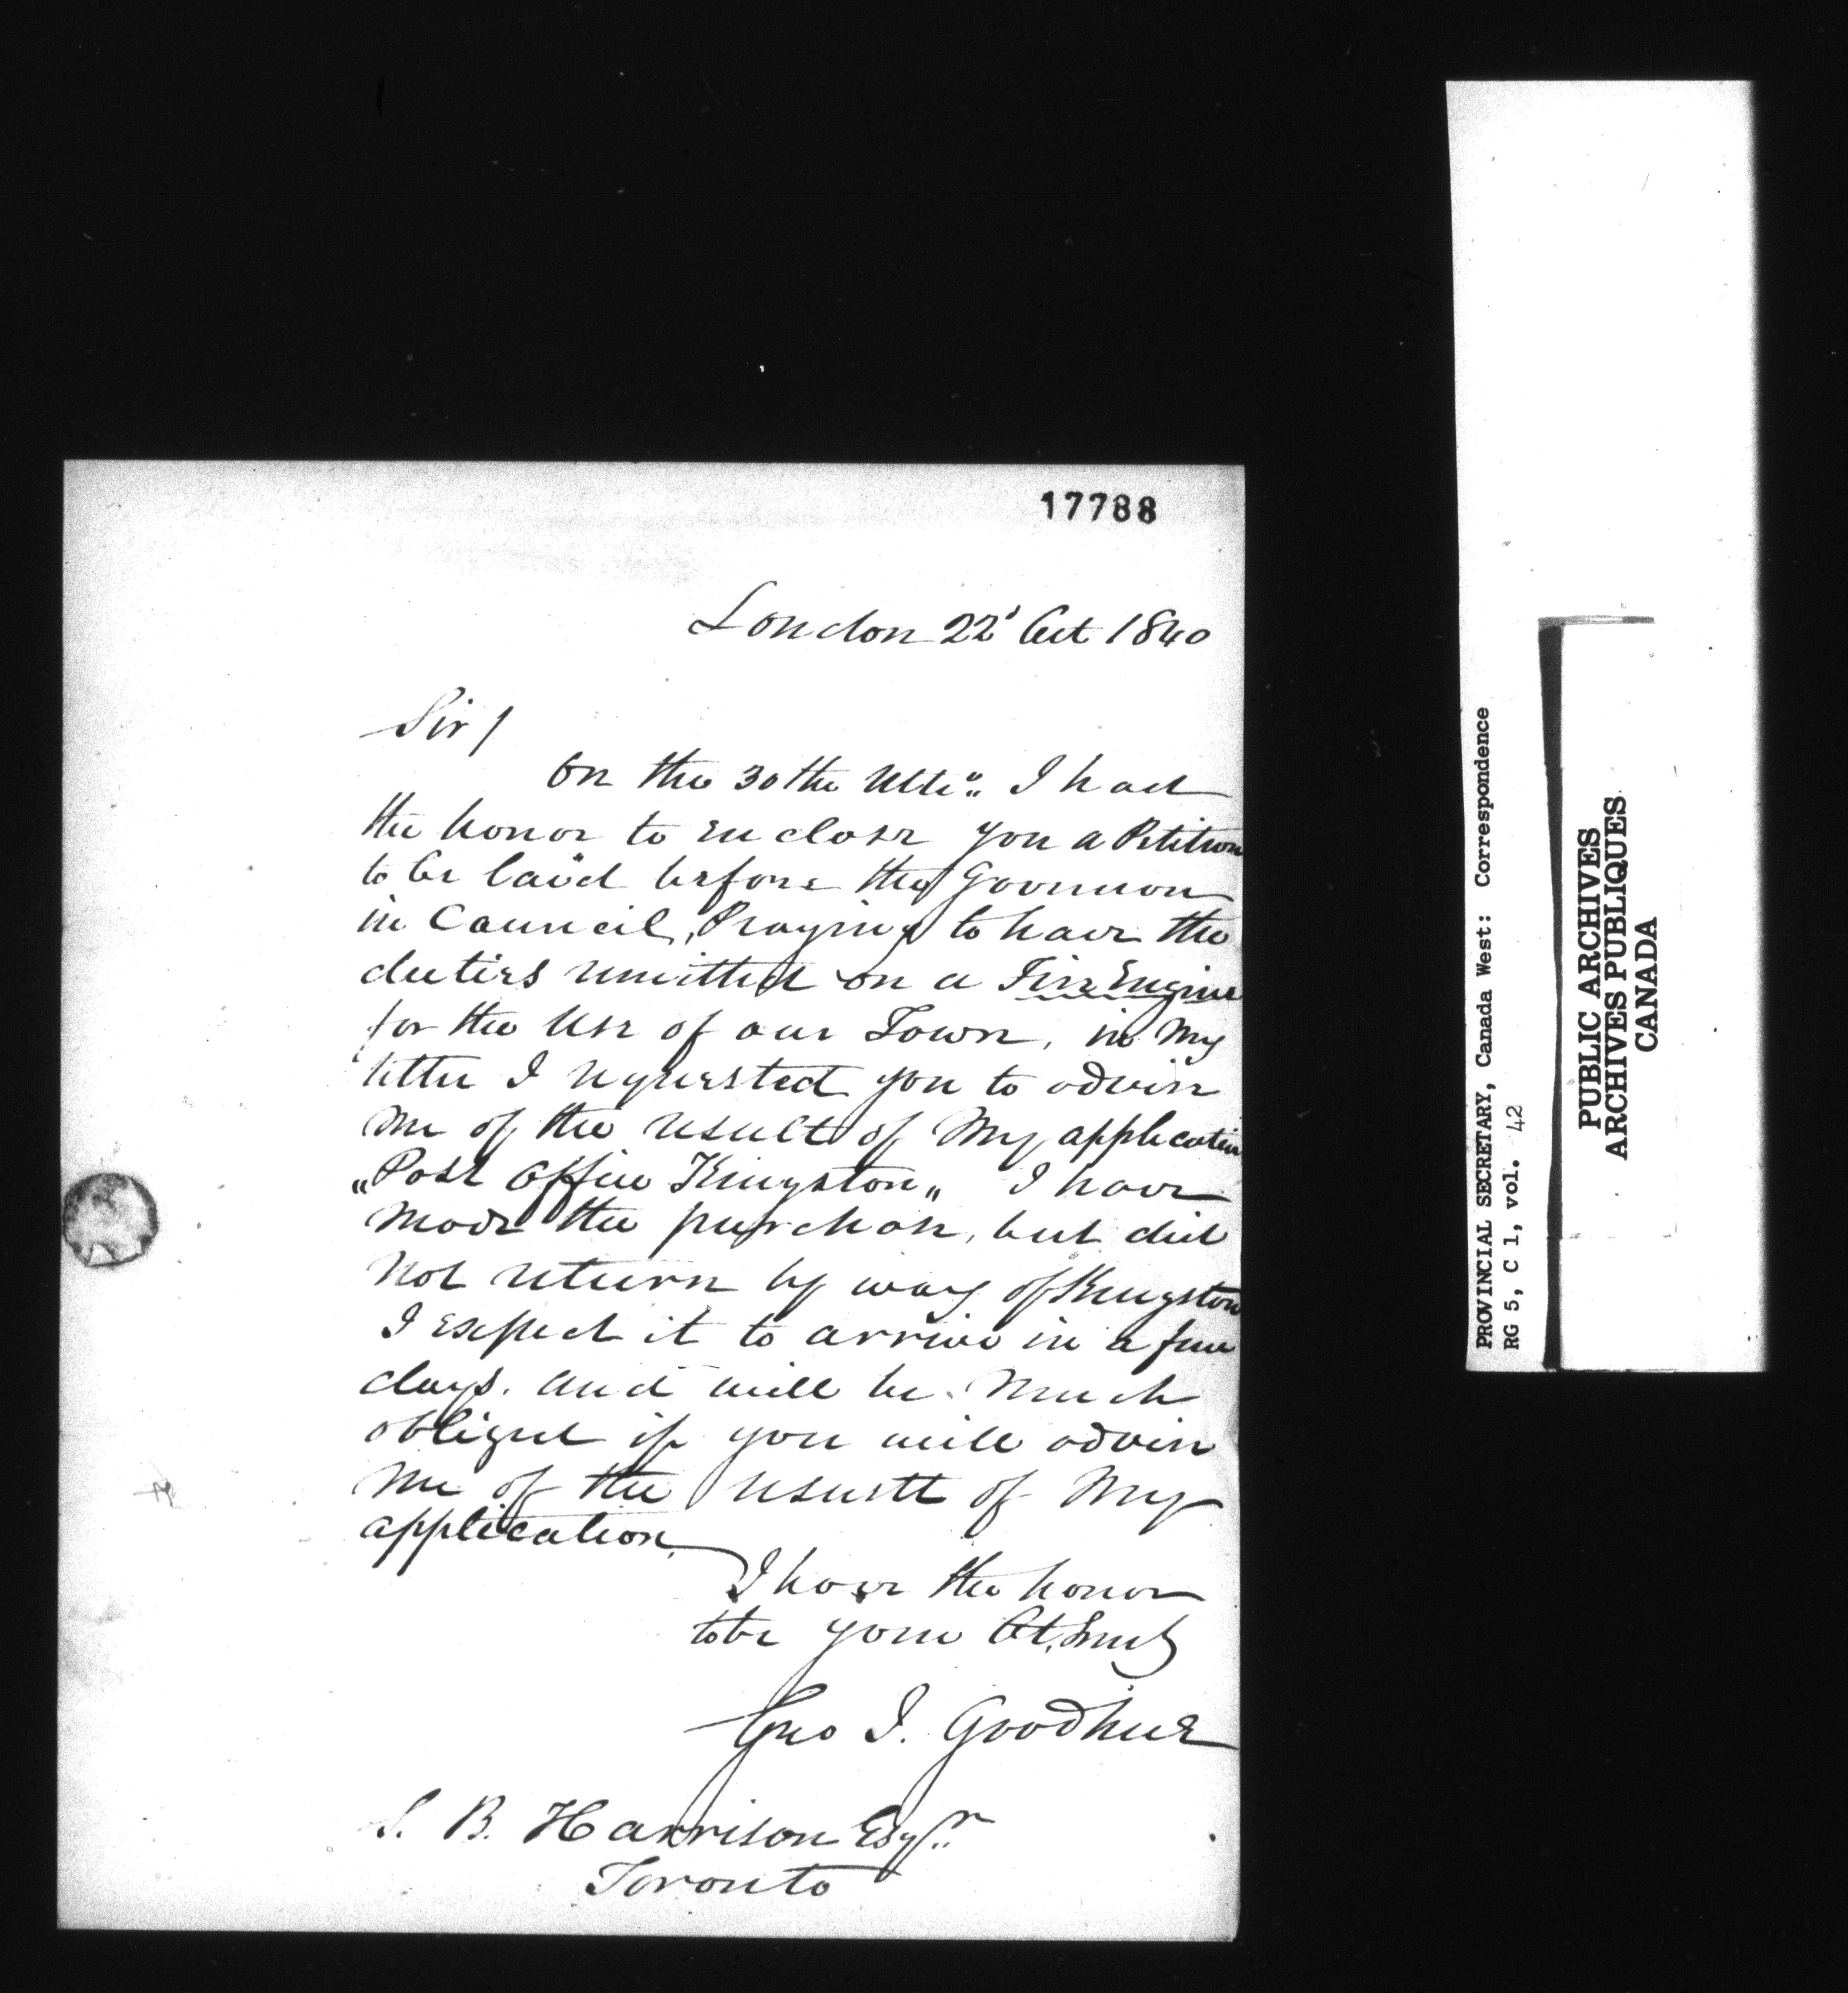 17788
London 22d Oct 1840
Sir /
On the 30the Ulto I had
the honor to enclose you a Petition
to be laid before the Governor
in Council, Praying to have the
duties remitted on a Fire Engine
for the use of our Town, in My
letter I requested you to advise
me of the result of My application
„Post Office Kingston„ I have
made the purchase, but did
not return by way of Kingston
I expect it to arrive in a few
days. and will be Much
obliged if you will advise
me of the result of My
application.
I have the honor
to be your Ob. Servt
Geo J. Goodhue
S. B. Harrison Esqr.
Toronto
PROVINCIAL SECRETARY, Canada West: Correspondence
RG 5, C 1, vol. 42
PUBLIC ARCHIVES
ARCHIVES PUBLIQUES
CANADA